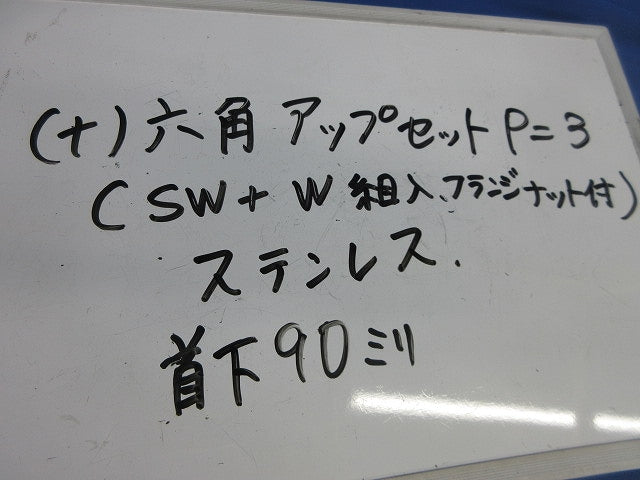 (+)六角アップセットP=3
(SW+W組入、フランジナット付)
ステンレス.
首下90ミリ